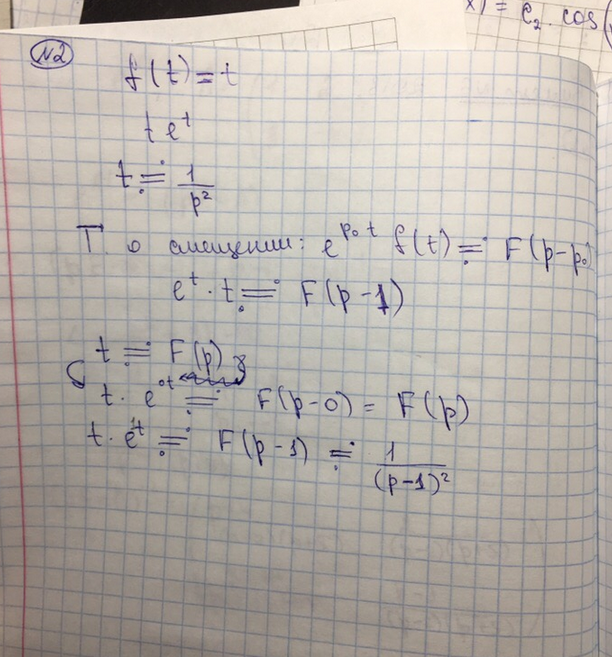 x) = e₂ · cos(
№2
f(t) = t
t eᵗ
t ≓ 1/p²
Т. о смещении: e^{p₀ t} f(t) ≓ F(p-p₀)
eᵗ · t ≓ F(p-1)
t ≓ F(p)
t · e^{0t} ≓ F(p-0) = F(p)
t · e^{1t} ≓ F(p-1) ≓ 1/(p-1)²